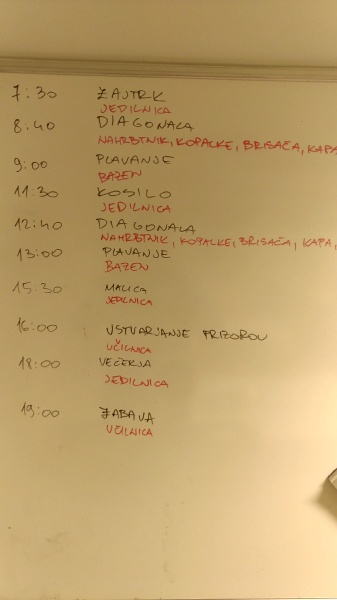 7:30 ZAJTRK
JEDILNICA
8:40 DIAGONALA
NAHRBTNIK, KOPALKE, BRISAČA, KAPA
9:00 PLAVANJE
BAZEN
11:30 KOSILO
JEDILNICA
12:40 DIAGONALA
NAHRBTNIK, KOPALKE, BRISAČA, KAPA,
13:00 PLAVANJE
BAZEN
15:30 MALICA
JEDILNICA
16:00 USTVARJANJE PRIZOROV
UČILNICA
18:00 VEČERJA
JEDILNICA
19:00 ZABAVA
UČILNICA